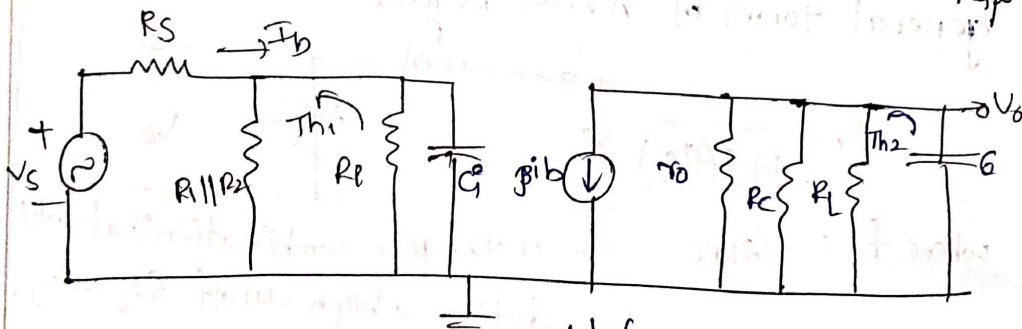 RS
→Ib
+
Vs
−
R1||R2
Th1
Ri
Ci
βib
ro
RC
RL
Th2
Vo